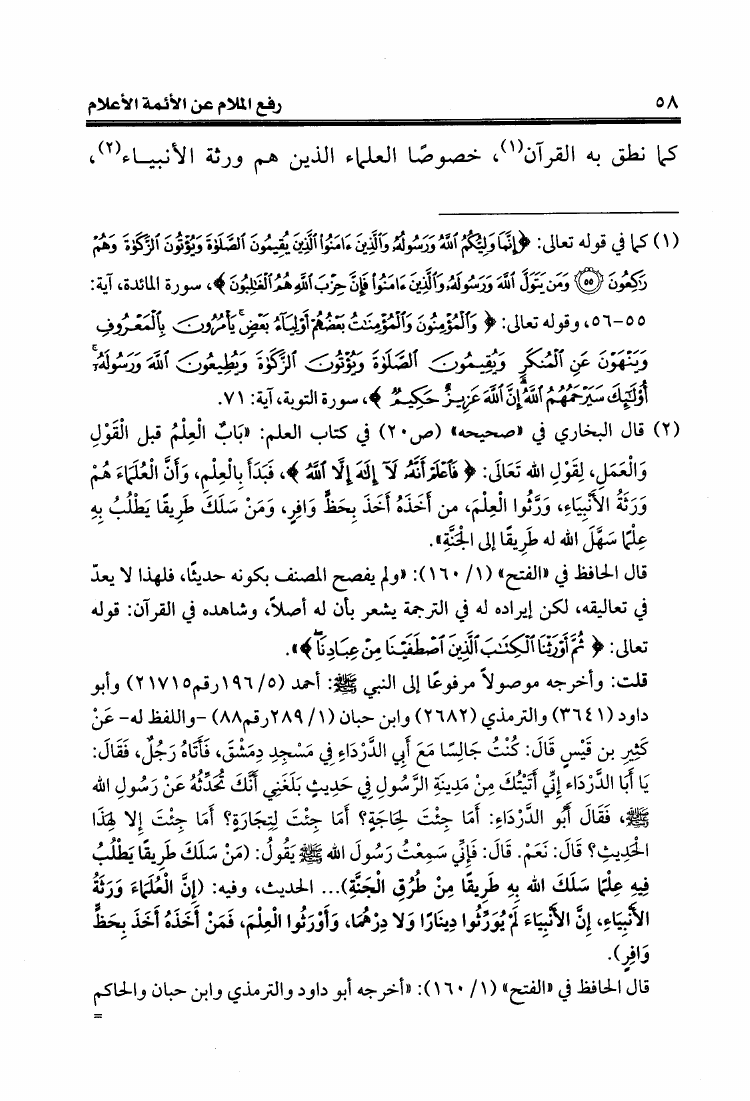 ٥٨ رفع الملام عن الأئمة الأعلام
كما نطق به القرآن(١)، خصوصًا العلماء الذين هم ورثة الأنبياء(٢)،
(١) كما في قوله تعالى: ﴿إِنَّمَا وَلِيُّكُمُ ٱللَّهُ وَرَسُولُهُۥ وَٱلَّذِينَ ءَامَنُواْ ٱلَّذِينَ يُقِيمُونَ ٱلصَّلَوٰةَ وَيُؤْتُونَ ٱلزَّكَوٰةَ وَهُمْ
رَٰكِعُونَ ۝٥٥ وَمَن يَتَوَلَّ ٱللَّهَ وَرَسُولَهُۥ وَٱلَّذِينَ ءَامَنُواْ فَإِنَّ حِزْبَ ٱللَّهِ هُمُ ٱلْغَٰلِبُونَ﴾، سورة المائدة، آية:
٥٥-٥٦، وقوله تعالى: ﴿وَٱلْمُؤْمِنُونَ وَٱلْمُؤْمِنَٰتُ بَعْضُهُمْ أَوْلِيَآءُ بَعْضٍ ۚ يَأْمُرُونَ بِٱلْمَعْرُوفِ
وَيَنْهَوْنَ عَنِ ٱلْمُنكَرِ وَيُقِيمُونَ ٱلصَّلَوٰةَ وَيُؤْتُونَ ٱلزَّكَوٰةَ وَيُطِيعُونَ ٱللَّهَ وَرَسُولَهُۥٓ ۚ
أُوْلَٰٓئِكَ سَيَرْحَمُهُمُ ٱللَّهُ ۗ إِنَّ ٱللَّهَ عَزِيزٌ حَكِيمٌ﴾، سورة التوبة، آية: ٧١.
(٢) قال البخاري في «صحيحه» (ص٢٠) في كتاب العلم: «بَابٌ الْعِلْمُ قبل الْقَوْلِ
وَالْعَمَلِ، لِقَوْلِ الله تَعَالَى: ﴿فَٱعْلَمْ أَنَّهُۥ لَآ إِلَٰهَ إِلَّا ٱللَّهُ﴾، فَبَدَأَ بِالْعِلْمِ، وَأَنَّ الْعُلَمَاءَ هُمْ
وَرَثَةُ الْأَنْبِيَاءِ، وَرَّثُوا الْعِلْمَ، من أَخَذَهُ أَخَذَ بِحَظٍّ وَافِرٍ، وَمَنْ سَلَكَ طَرِيقًا يَطْلُبُ بِهِ
عِلْمًا سَهَّلَ الله له طَرِيقًا إلى الْجَنَّةِ».
قال الحافظ في «الفتح» (١/ ١٦٠): «ولم يفصح المصنف بكونه حديثًا، فلهذا لا يعدّ
في تعاليقه، لكن إيراده له في الترجمة يشعر بأن له أصلاً، وشاهده في القرآن: قوله
تعالى: ﴿ثُمَّ أَوْرَثْنَا ٱلْكِتَٰبَ ٱلَّذِينَ ٱصْطَفَيْنَا مِنْ عِبَادِنَا ۖ﴾».
قلت: وأخرجه موصولاً مرفوعًا إلى النبي ﷺ: أحمد (٥/ ١٩٦رقم٢١٧١٥) وأبو
داود (٣٦٤١) والترمذي (٢٦٨٢) وابن حبان (١/ ٢٨٩رقم٨٨) -واللفظ له- عَنْ
كَثِيرِ بن قَيْسٍ قَالَ: كُنْتُ جَالِسًا مَعَ أَبِي الدَّرْدَاءِ فِي مَسْجِدِ دِمَشْقَ، فَأَتَاهُ رَجُلٌ، فَقَالَ:
يَا أَبَا الدَّرْدَاءِ إِنِّي أَتَيْتُكَ مِنْ مَدِينَةِ الرَّسُولِ فِي حَدِيثٍ بَلَغَنِي أَنَّكَ تُحَدِّثُهُ عَنْ رَسُولِ الله
ﷺ، فَقَالَ أَبُو الدَّرْدَاءِ: أَمَا جِئْتَ لِحَاجَةٍ؟ أَمَا جِئْتَ لِتِجَارَةٍ؟ أَمَا جِئْتَ إِلا لِهَذَا
الْحَدِيثِ؟ قَالَ: نَعَمْ. قَالَ: فَإِنِّي سَمِعْتُ رَسُولَ الله ﷺ يَقُولُ: (مَنْ سَلَكَ طَرِيقًا يَطْلُبُ
فِيهِ عِلْمًا سَلَكَ الله بِهِ طَرِيقًا مِنْ طُرُقِ الْجَنَّةِ)... الحديث، وفيه: (إِنَّ الْعُلَمَاءَ وَرَثَةُ
الْأَنْبِيَاءِ، إِنَّ الْأَنْبِيَاءَ لَمْ يُوَرِّثُوا دِينَارًا وَلَا دِرْهَمًا، وَأَوْرَثُوا الْعِلْمَ، فَمَنْ أَخَذَهُ أَخَذَ بِحَظٍّ
وَافِرٍ).
قال الحافظ في «الفتح» (١/ ١٦٠): «أخرجه أبو داود والترمذي وابن حبان والحاكم
=